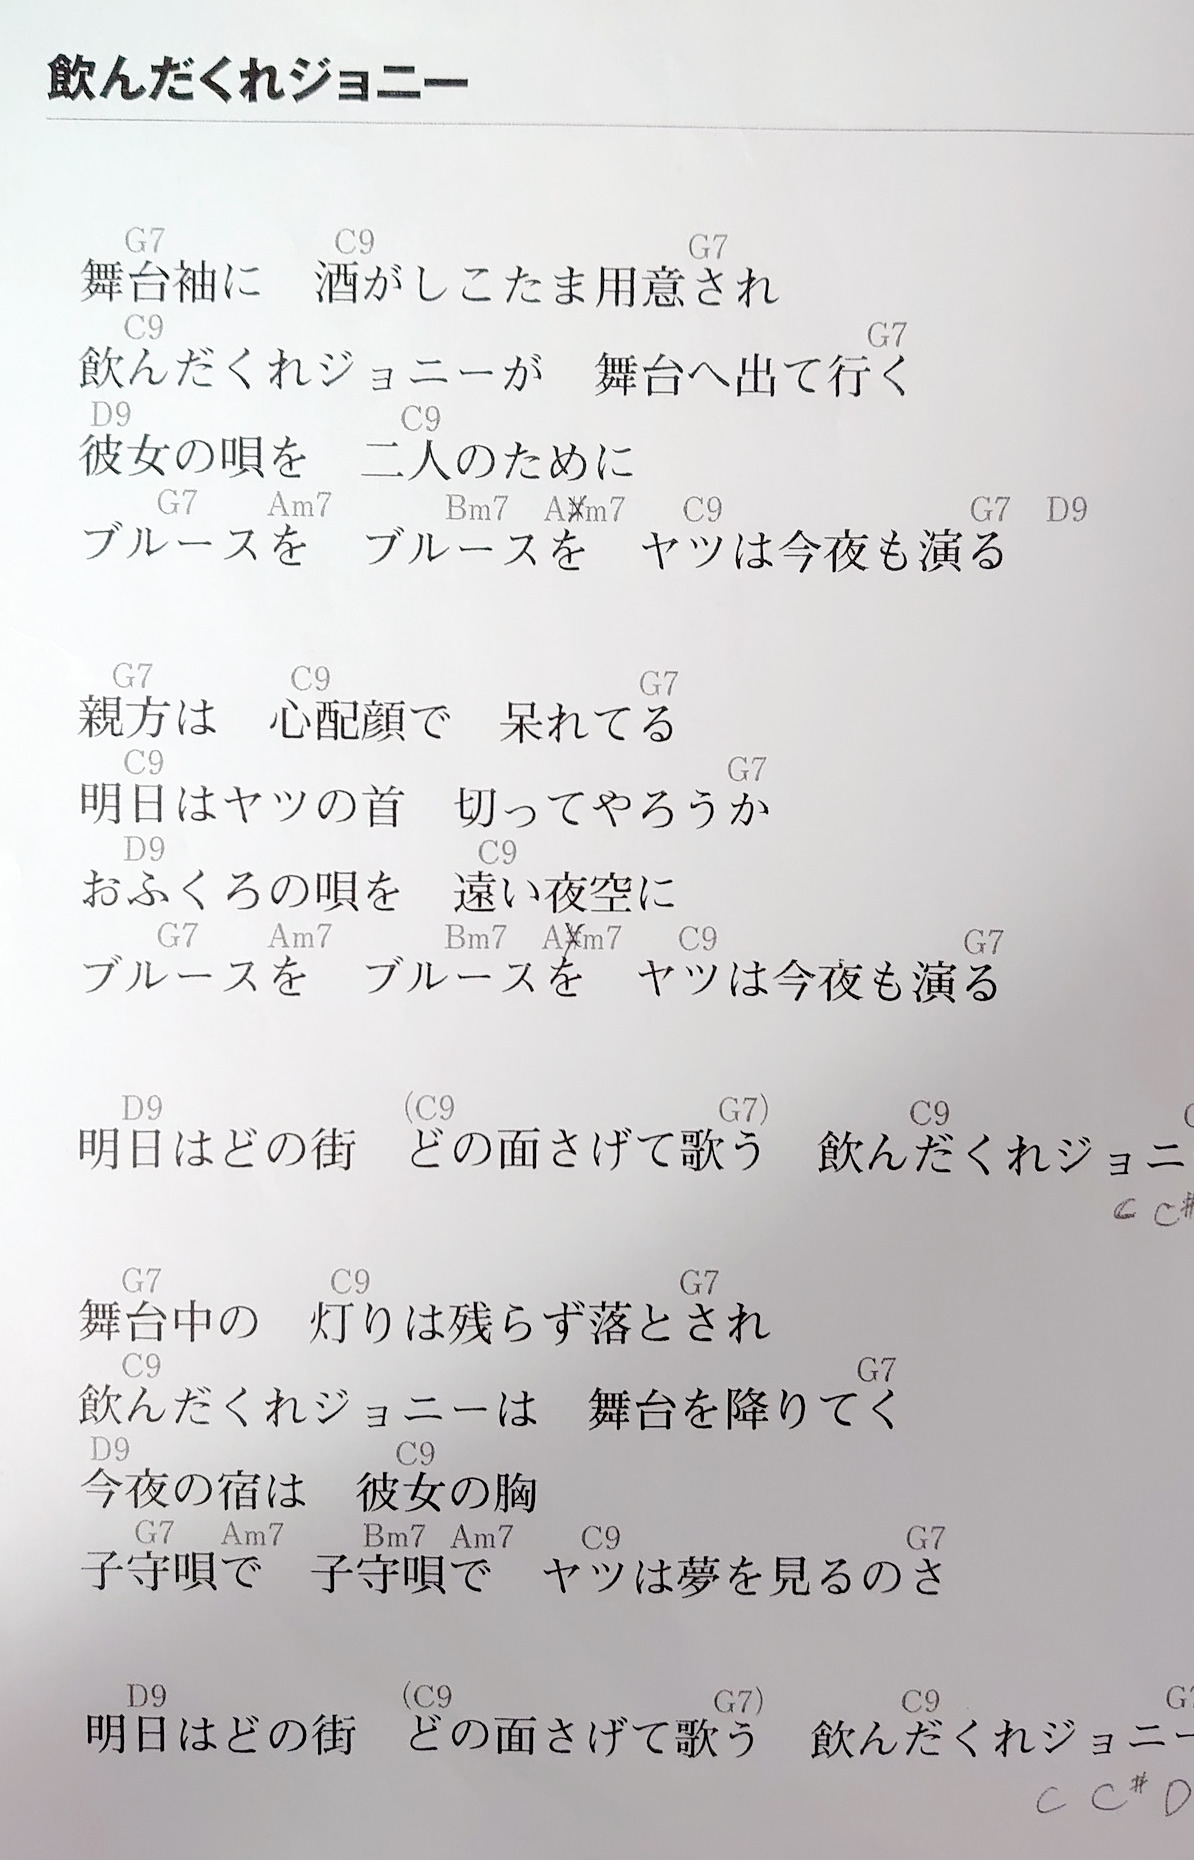 飲んだくれジョニー
G7 C9 G7
舞台袖に　酒がしこたま用意され
C9 G7
飲んだくれジョニーが　舞台へ出て行く
D9 C9
彼女の唄を　二人のために
G7 Am7 Bm7 A m7 C9 G7 D9
ブルースを　ブルースを　ヤツは今夜も演る
G7 C9 G7
親方は　心配顔で　呆れてる
C9 G7
明日はヤツの首　切ってやろうか
D9 C9
おふくろの唄を　遠い夜空に
G7 Am7 Bm7 A m7 C9 G7
ブルースを　ブルースを　ヤツは今夜も演る
D9 (C9 G7) C9
明日はどの街　どの面さげて歌う　飲んだくれジョニ
C C#
G7 C9 G7
舞台中の　灯りは残らず落とされ
C9 G7
飲んだくれジョニーは　舞台を降りてく
D9 C9
今夜の宿は　彼女の胸
G7 Am7 Bm7 Am7 C9 G7
子守唄で　子守唄で　ヤツは夢を見るのさ
D9 (C9 G7) C9 G7
明日はどの街　どの面さげて歌う　飲んだくれジョニー
C C# D